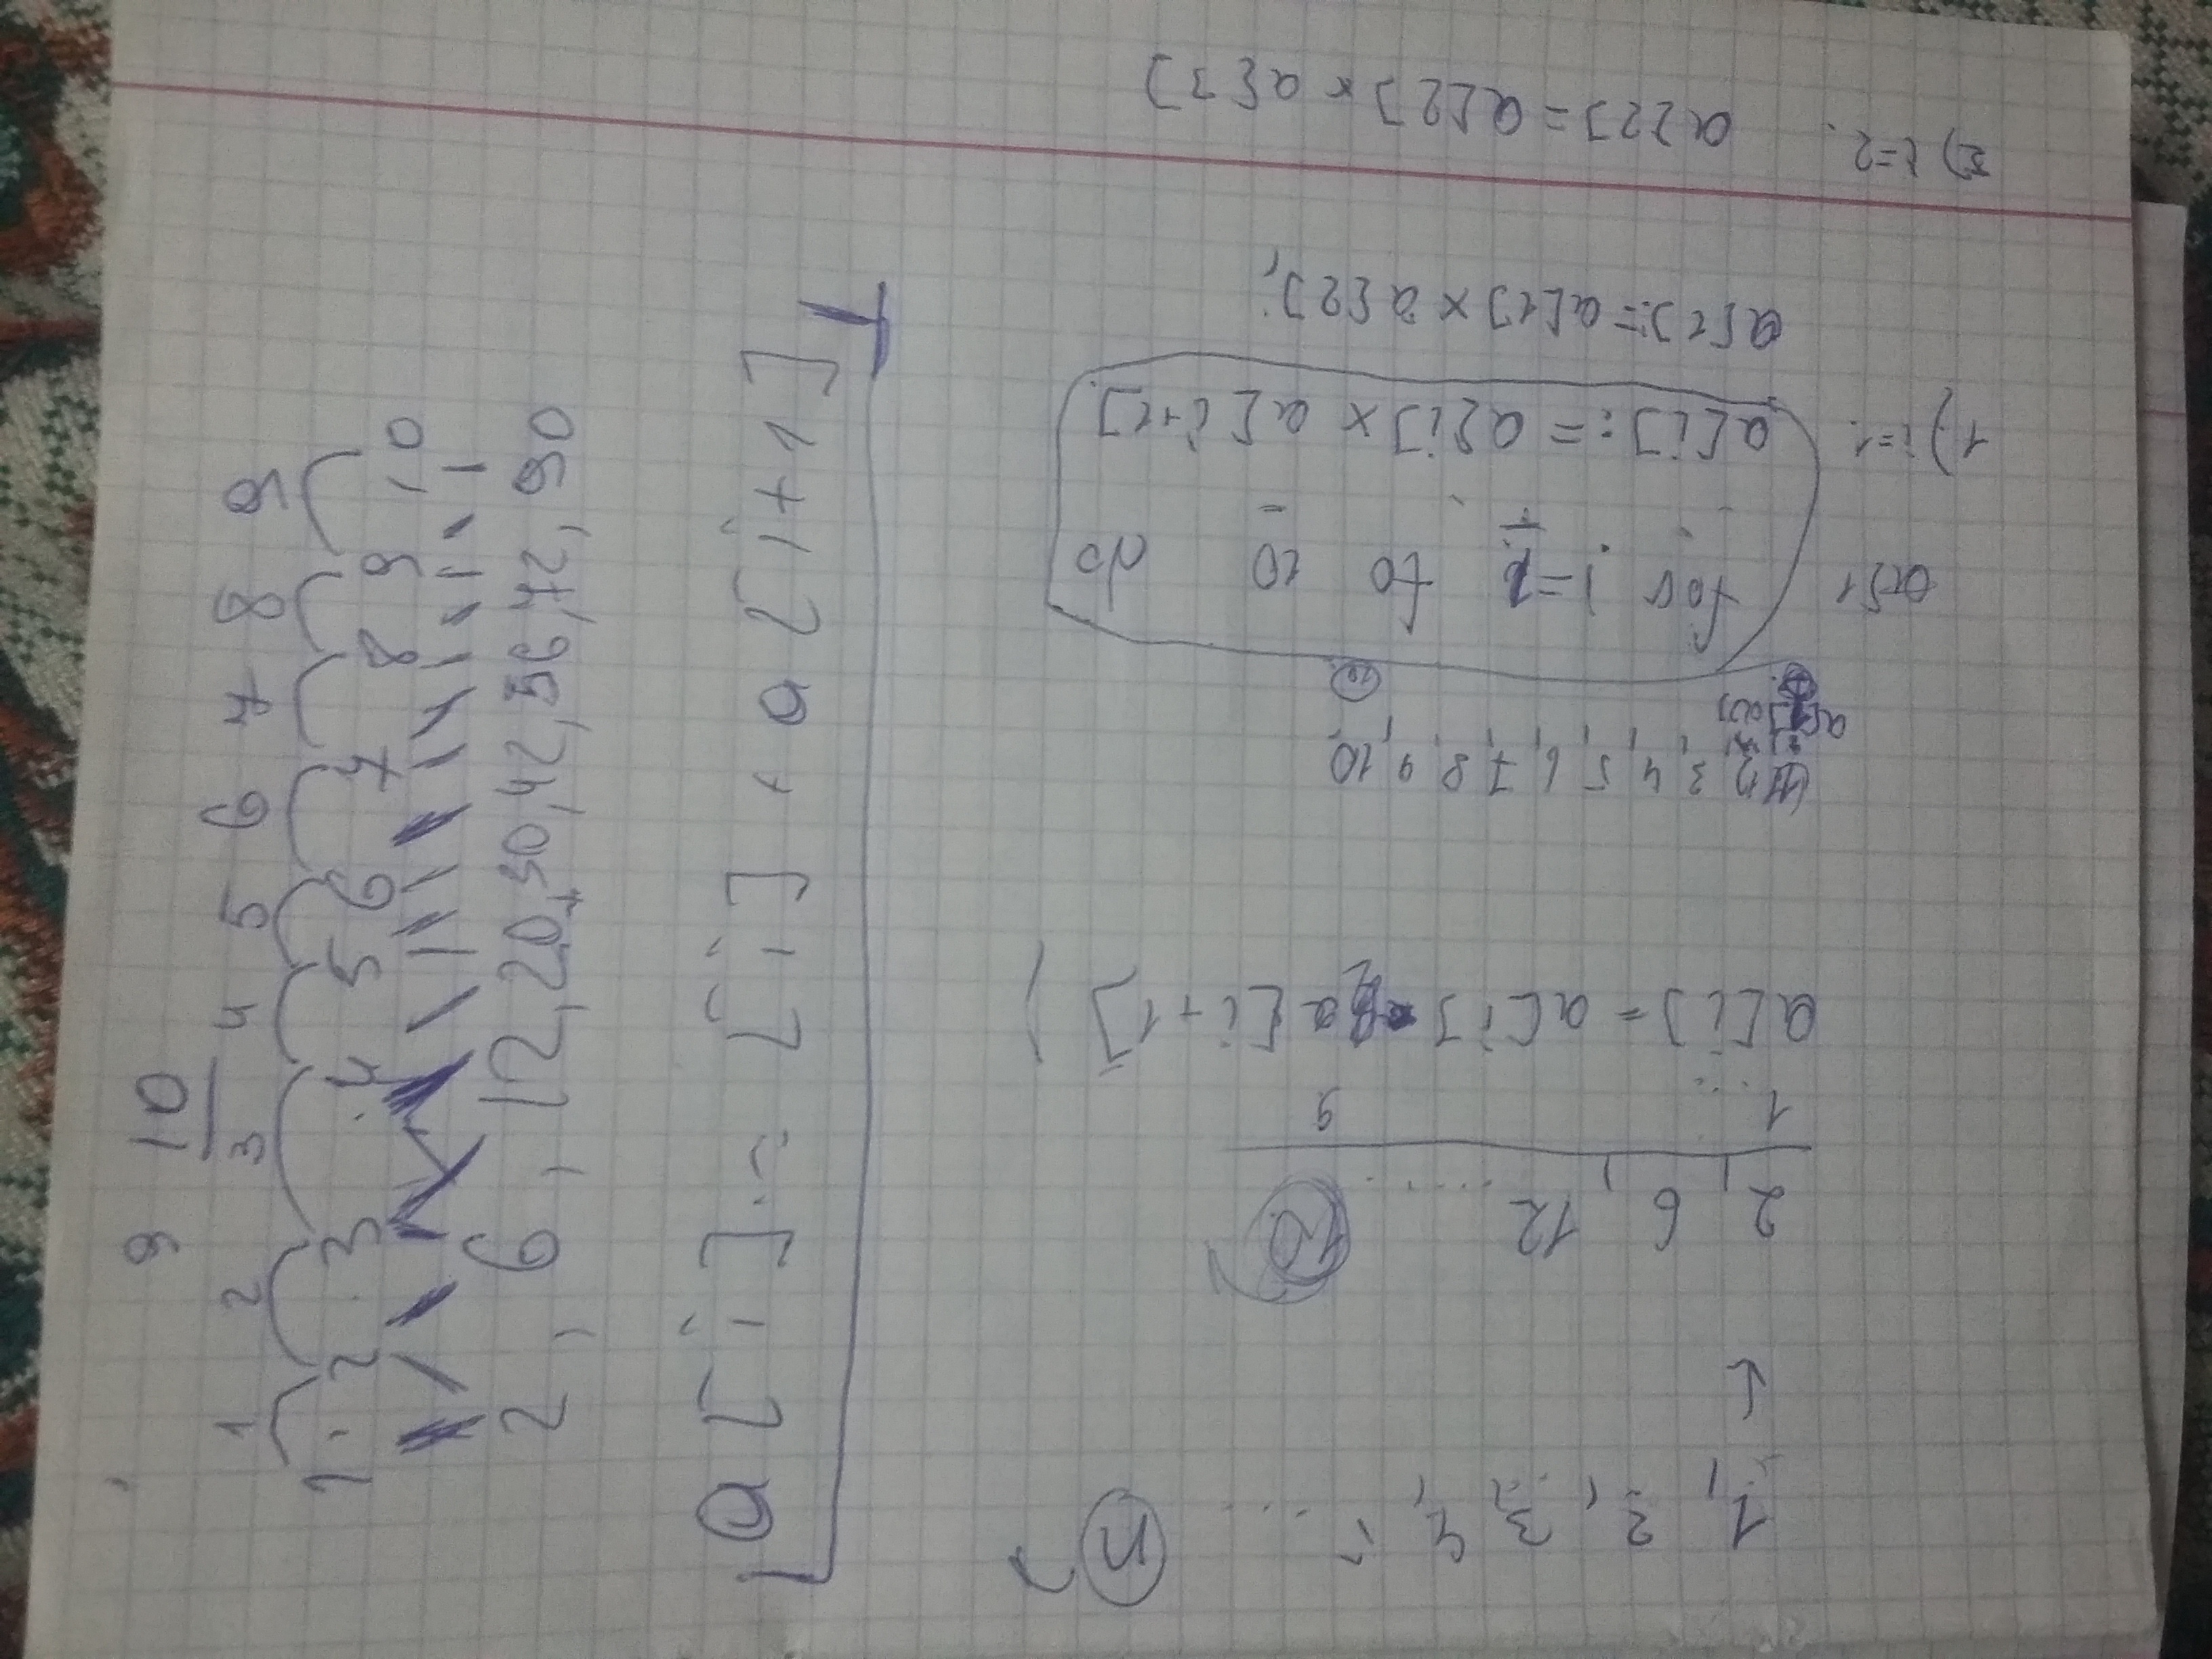 9 10
1 2 3 4 5 6 7 8 9
1 . 2 . 3 . 4 5 6 7 8 9 , 10
2 , 6 , 12 , 20 , 30 , 42 , 56 , 72 , 90
a [ i ] := [ i ] * a [ i + 1 ]
a[2] = a[2] × a[3]
i=2.
a[1] := a[1] × a[2];
1) i=1.
a[i] := a[i] × a[i+1]
for i=1 to 10 do
2, 3, 4, 5, 6, 7, 8, 9, 10
a[i] = a[i] a[i+1]
1 ... 9
2, 6, 12 ......
1, 2, 3, 4, ... n